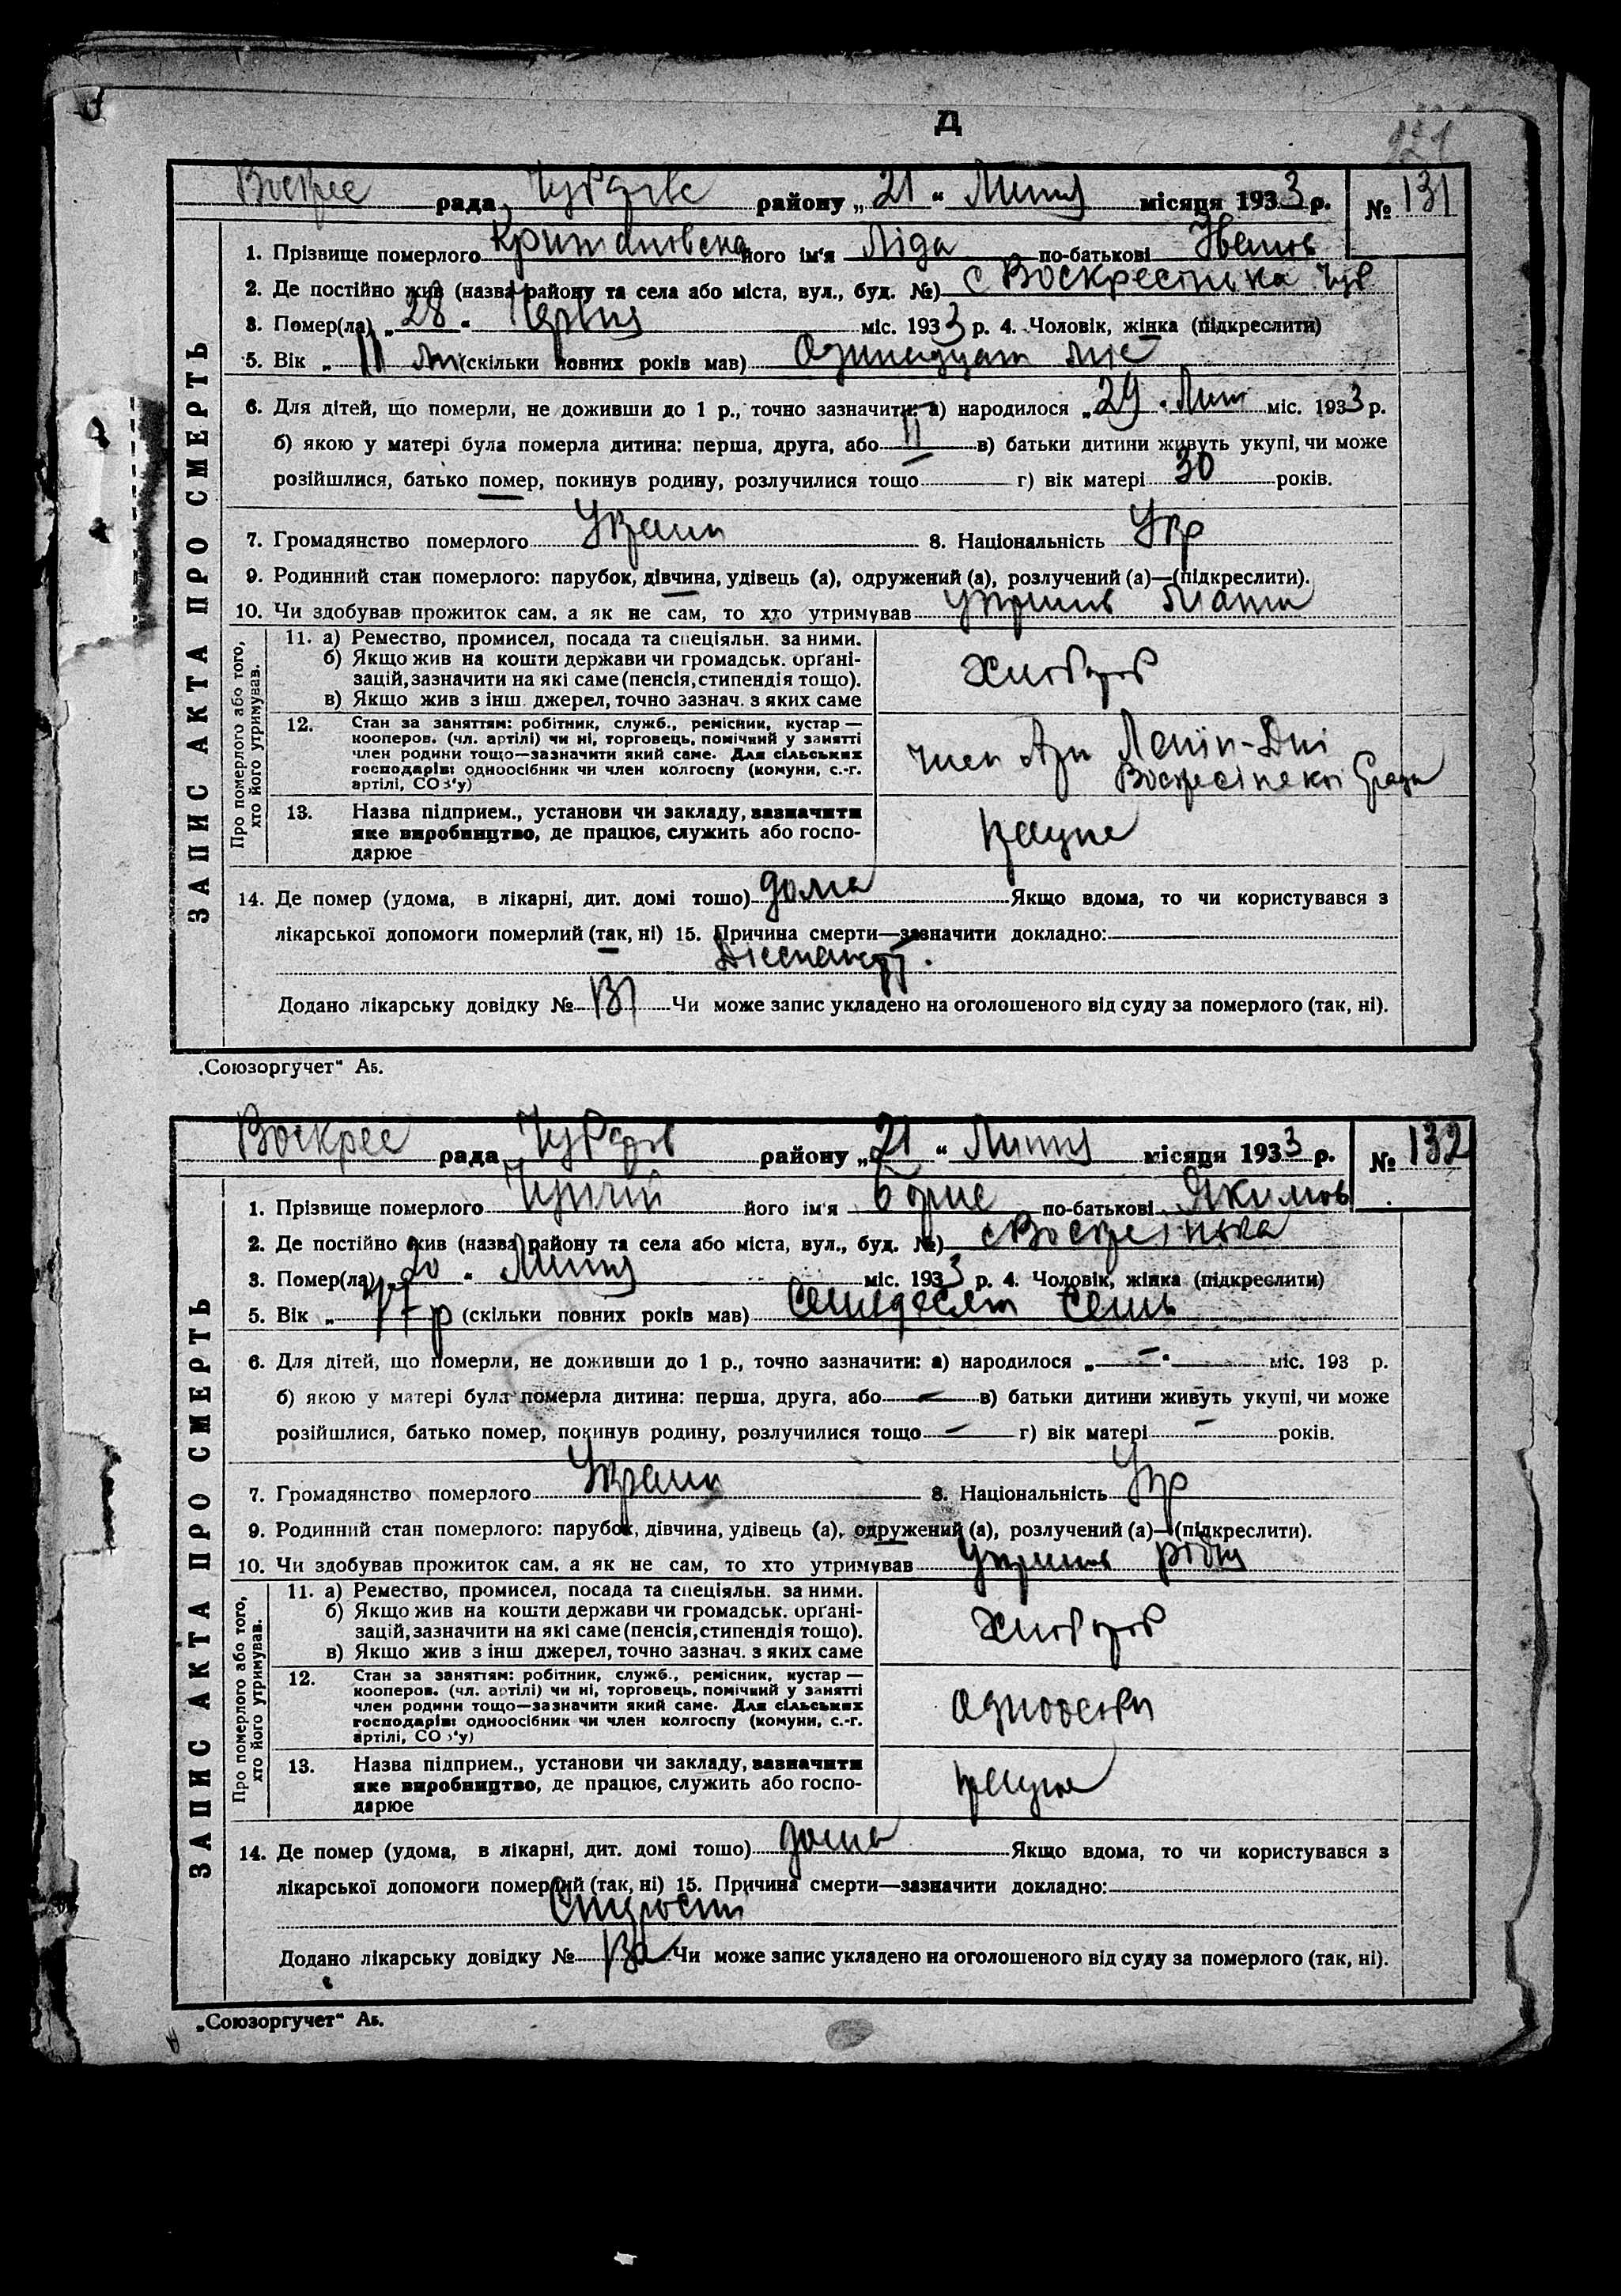 Д
Воскрес рада, Чубарівс району „21“ Липня місяця 1933 р. № 131
ЗАПИС АКТА ПРО СМЕРТЬ
1. Прізвище померлого його ім'я Ліда по-батькові Иванов
2. Де постійно жив (назва району та села або міста, вул., буд. №) с Воскресінька Чуб
3. Помер(ла) „28“ Червня міс. 1933 р. 4. Чоловік, жінка (підкреслити)
5. Вік „11 міс (скільки повних років мав) Одинадцат міс
6. Для дітей, що померли, не доживши до 1 р., точно зазначити: а) народилося „29“ Лип міс. 1933 р.
б) якою у матері була померла дитина: перша, друга, або II в) батьки дитини живуть укупі, чи може
розійшлися, батько помер, покинув родину, розлучилися тощо г) вік матері 30 років.
7. Громадянство померлого Україн 8. Національність Укр
9. Родинний стан померлого: парубок, дівчина, удівець (а), одружений (а), розлучений (а)—(підкреслити).
10. Чи здобував прожиток сам, а як не сам, то хто утримував утримув мати
Про померлого або того, хто його утримував.
11. а) Ремество, промисел, посада та спеціяльн. за ними.
б) Якщо жив на кошти держави чи громадськ. органі-
зацій, зазначити на які саме (пенсія, стипендія тощо). Хлібороб
в) Якщо жив з інш. джерел, точно зазнач. з яких саме
12. Стан за заняттям: робітник, служб., ремісник, кустар —
кооперов. (чл. артілі) чи ні, торговець, помічний у занятті
член родини тощо—зазначити який саме. Для сільських член Арт Ленін-
господарів: одноосібник чи член колгоспу (комуни, с.-г. Воскресінської
артілі, СОЗ'у)
13. Назва підприєм., установи чи закладу, зазначити
яке виробництво, де працює, служить або госпо-
дарює
14. Де помер (удома, в лікарні, дит. домі тощо) дома Якщо вдома, то чи користувався з
лікарської допомоги померлий (так, ні) 15. Причина смерти—зазначити докладно:
Додано лікарську довідку № 131 Чи може запис укладено на оголошеного від суду за померлого (так, ні).
„Союзоргучет“ Аб.
Воскрес рада, Чубарів району „21“ Липня місяця 1933 р. № 132
ЗАПИС АКТА ПРО СМЕРТЬ
1. Прізвище померлого його ім'я Борис по-батькові Якимов
2. Де постійно жив (назва району та села або міста, вул., буд. №) с Воскресінька
3. Помер(ла) „20“ Липня міс. 1933 р. 4. Чоловік, жінка (підкреслити)
5. Вік „77 р (скільки повних років мав) Семидесят семь
6. Для дітей, що померли, не доживши до 1 р., точно зазначити: а) народилося „—“ міс. 193 р.
б) якою у матері була померла дитина: перша, друга, або — в) батьки дитини живуть укупі, чи може
розійшлися, батько помер, покинув родину, розлучилися тощо — г) вік матері — років.
7. Громадянство померлого Україн 8. Національність Укр
9. Родинний стан померлого: парубок, дівчина, удівець (а), одружений (а), розлучений (а)—(підкреслити).
10. Чи здобував прожиток сам, а як не сам, то хто утримував утримув рідня
Про померлого або того, хто його утримував.
11. а) Ремество, промисел, посада та спеціяльн. за ними.
б) Якщо жив на кошти держави чи громадськ. органі-
зацій, зазначити на які саме (пенсія, стипендія тощо). Хлібороб
в) Якщо жив з інш. джерел, точно зазнач. з яких саме
12. Стан за заняттям: робітник, служб., ремісник, кустар —
кооперов. (чл. артілі) чи ні, торговець, помічний у занятті
член родини тощо—зазначити який саме. Для сільських
господарів: одноосібник чи член колгоспу (комуни, с.-г.
артілі, СОЗ'у)
13. Назва підприєм., установи чи закладу, зазначити
яке виробництво, де працює, служить або госпо-
дарює
14. Де помер (удома, в лікарні, дит. домі тощо) дома Якщо вдома, то чи користувався з
лікарської допомоги померлий (так, ні) 15. Причина смерти—зазначити докладно:
Старости
Додано лікарську довідку № 132 Чи може запис укладено на оголошеного від суду за померлого (так, ні).
„Союзоргучет“ Аб.